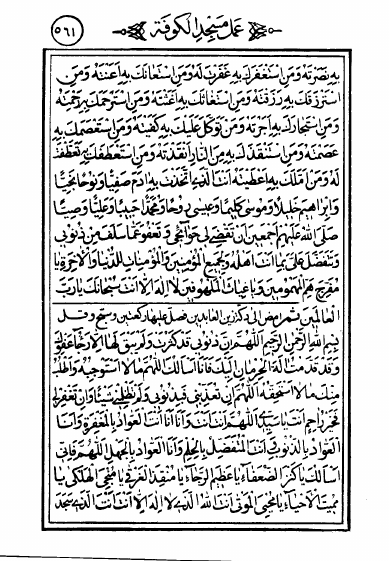 عمل مسجد الكوفة
٥٦١
به نصرته ومن استغفرك به غفرت له ومن استعانك به اعنته ومن
استرزقك به رزقته ومن استغاثك به اغثته ومن استرحمك به رحمته
ومن استجارك به اجرته ومن توكل عليك به كفيته ومن استعصمك به
عصمته ومن استنقذك به من النار انقذته ومن استعطفك به تعطفت
له ومن املك به اعطيته الذي اتخذت به ادم صفيا ونوحا نجيا
وابراهيم خليلا وموسى كليما وعيسى روحا ومحمدا حبيبا وعليا وصيا
صلى الله عليهم اجمعين ان تقضي لي حوائجي وتعفو عما سلف من ذنوبي
وتتفضل علي بما انت اهله ولجميع المؤمنين والمؤمنات للدنيا والاخرة يا
مفرج هم المهمومين ويا غياث الملهوفين لا اله الا انت سبحانك يا رب
العالمين ثم امض الى دكة زين العابدين فصل عليها ركعتين وسبح وقل
بسم الله الرحمن الرحيم اللهم ان ذنوبي قد كثرت ولم يبق لها الا رجاء عفوك
وقد قدمت الة الحرمان اليك فانا اسالك اللهم ما لا استوجبه واطلب
منك ما لا استحقه اللهم ان تعذبني فبذنوبي ولم تظلمني شيئا وان تغفر لي
فخير راحم انت يا سيدي اللهم انت انت وانا انا انت العواد بالمغفرة وانا
العواد بالذنوب انت المتفضل بالحلم وانا العواد بالجهل اللهم فاني
اسالك يا كنز الضعفاء يا عظيم الرجاء يا منقذ الغرقى يا منجي الهلكى يا
مميت الاحياء يا محيي الموتى انت الله الذي لا اله الا انت انت الذي سجد